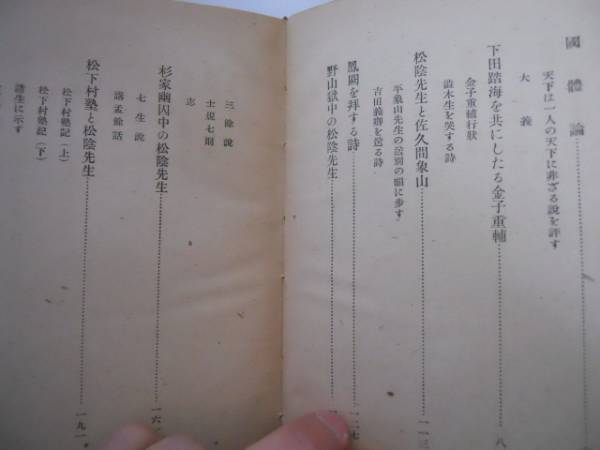 國體論
天下は一人の天下に非ざる說を評す
大義
下田踏海を共にしたる金子重輔……八
金子重輔行狀
澁木生を哭する詩
松陰先生と佐久間象山……一一三
平象山先生の送別の韻に步す
吉田義卿を送る詩
鳳闕を拜する詩……一二七
野山獄中の松陰先生……一
三餘說
士規七則
志
杉家幽囚中の松陰先生……一六
七生說
講孟餘話
松下村塾と松陰先生……一九一
松下村塾記（上）
松下村塾記（下）
諸生に示す